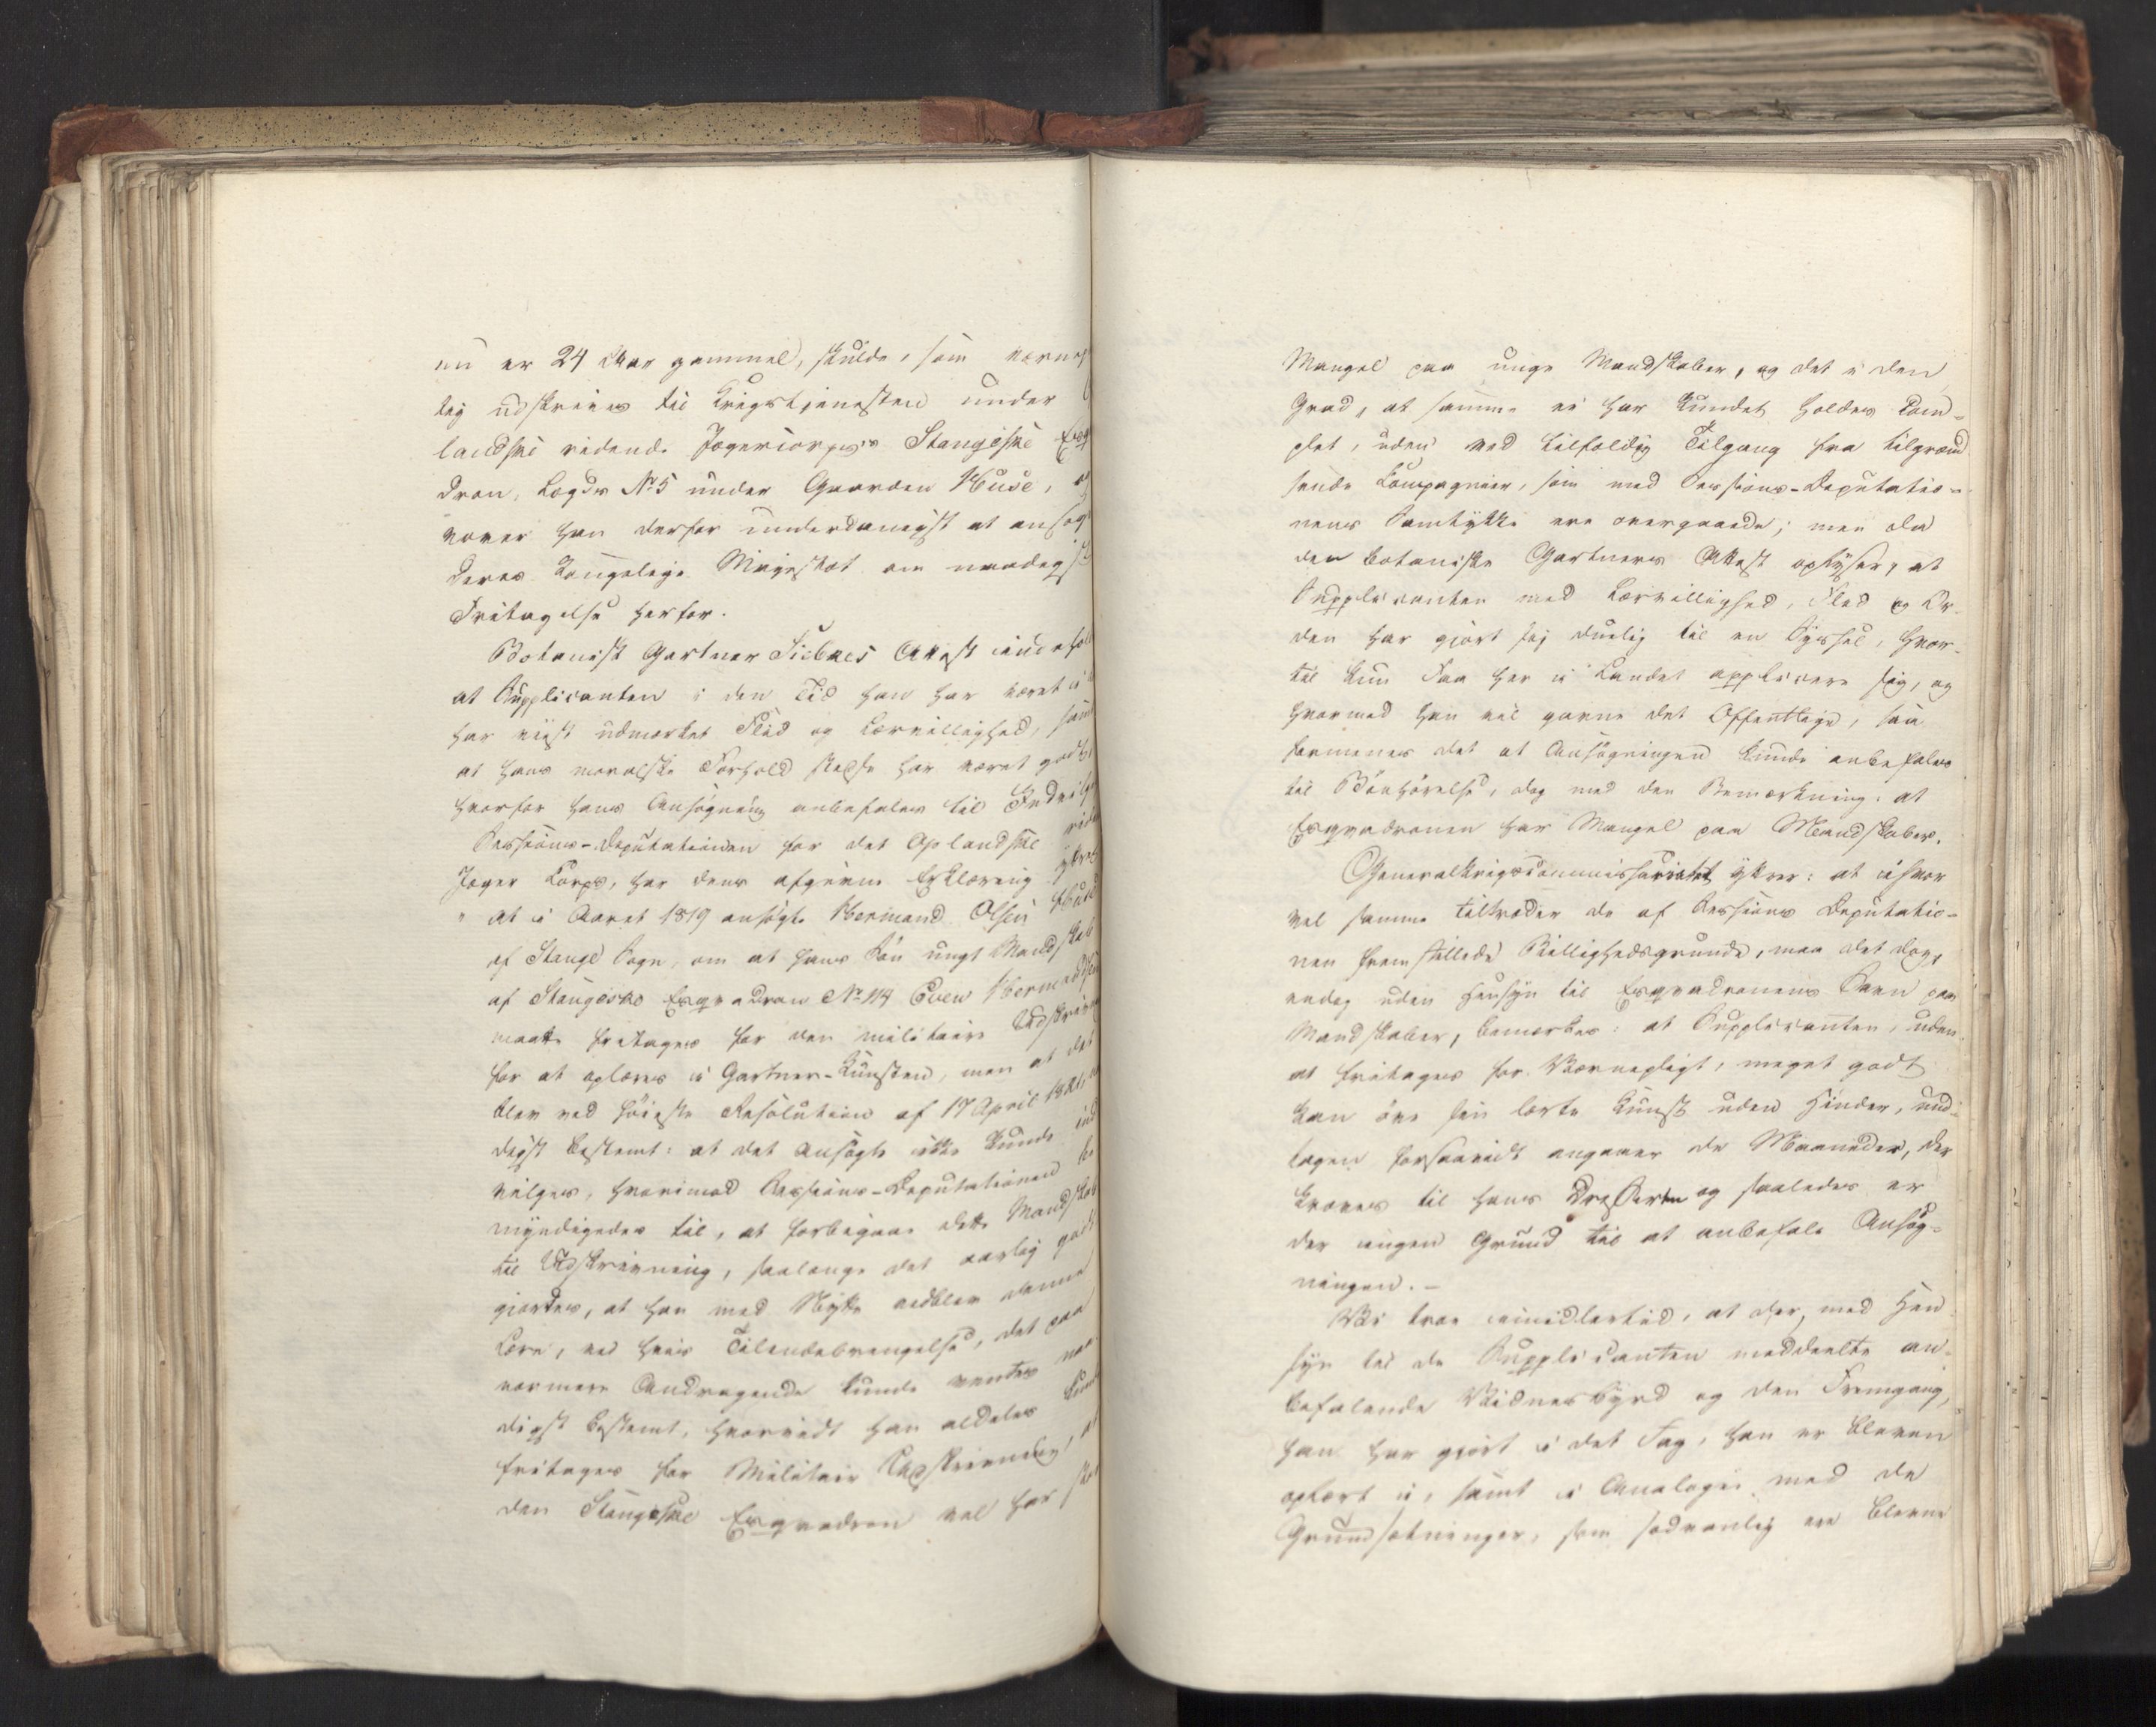 nu er 24 Aar gammel, skulde, som vernep
tig udskrives til Krigstjenesten under
landske ridende Jægercorps's Stangeske Esq
dron, Lægds No 5 under Gaarden Huse, og
vover han derfor underdanigst at ansøge
Deres Kongelige Majestæt om naadigst
Fritagelse herfor.
Botanisk Gartner Siebkes Attest indehol
at Supplicanten i den Tid han har været i
har viist udmærket Flid og Lærvillighed, samt
at hans moralske Forhold stedse har været godt,
hvorfor hans Ansøgning anbefales til Indvilge
Sessions-Deputationen for det Oplandske rid
Jæger Corps, har dens afgivne Erklæring yttret
" at i Aaret 1819 ansøgte Hermand Olsen Huse
af Stange Sogn, om at hans Søn ungt Mandskab
af Stangeske Esqvadron No 114 Even Hermandsen
maatte fritages for den militaire Udskrivn
for at oplæres i Gartner-Kunsten, men at det
blev ved høieste Resolution af 17 April 1821, n
digst bestemt: at det Ansøgte ikke kunde ind
vilges, hvorimod Sessions-Deputationen be
myndigedes til, at forbigaae dette Mandskab
til Udskrivning, saalænge det aarlig godt
giordes, at han med Nytte vedblev denne
Lære, ved hvis Tilendebringelse, det paa
nærmere Andragende kunde ventes naa
digst bestemt, hvorvidt han aldeles kunde
fritages for Militair Udskrivning, at
den Stangeske Esqvadron vel har stor
Mangel paa unge Mandskaber, og det i den
Grad, at samme ei har kundet holdes Com-
plet, uden ved tilfældig Tilgang fra tilgrænd
sende Compagnier, som med Sessions-Deputatio-
nens Samtykke ere overgaaede; men da
den botaniske Gartners Attest oplyser, at
Supplicanten med Lærvillighed, Flid og Or-
den har giort sig duelig til en Syssel, hvor-
til kun Faa her i Landet applicere sig, og
hvormed han vil gavne det Offentlige, saa
formenes det at Ansøgningen kunde anbefales
til Bønhørelse, dog med den Bemærkning: at
Esqvadronen har Mangel paa Mandskaber.
Generalkrigscommissariatet yttrer: at ihvor
vel samme tiltræder de af Sessions Deputatio-
nen fremstillede Billighedsgrunde, maa det dog,
endog uden Hensyn til Esqvadronens Savn paa
Mandskaber, bemærkes: at Supplicanten, uden
at fritages for Værnepligt, meget godt
kan øve sin lærte Kunst uden Hinder, und-
tagen forsaavidt angaaer de Maaneder, der
kræves til hans Dresseren og saaledes er
der ingen Grund til at anbefale Ansøg-
ningen. -
Vi troe imidlertid, at der, med Hen
syn til de Supplicanten meddeelte an-
befalende Vidnesbyrd og den Fremgang,
han har giort i det Fag, han er bleven
oplært i, samt i Analogie med de
Grundsætninger, som sædvanlig ere blevne